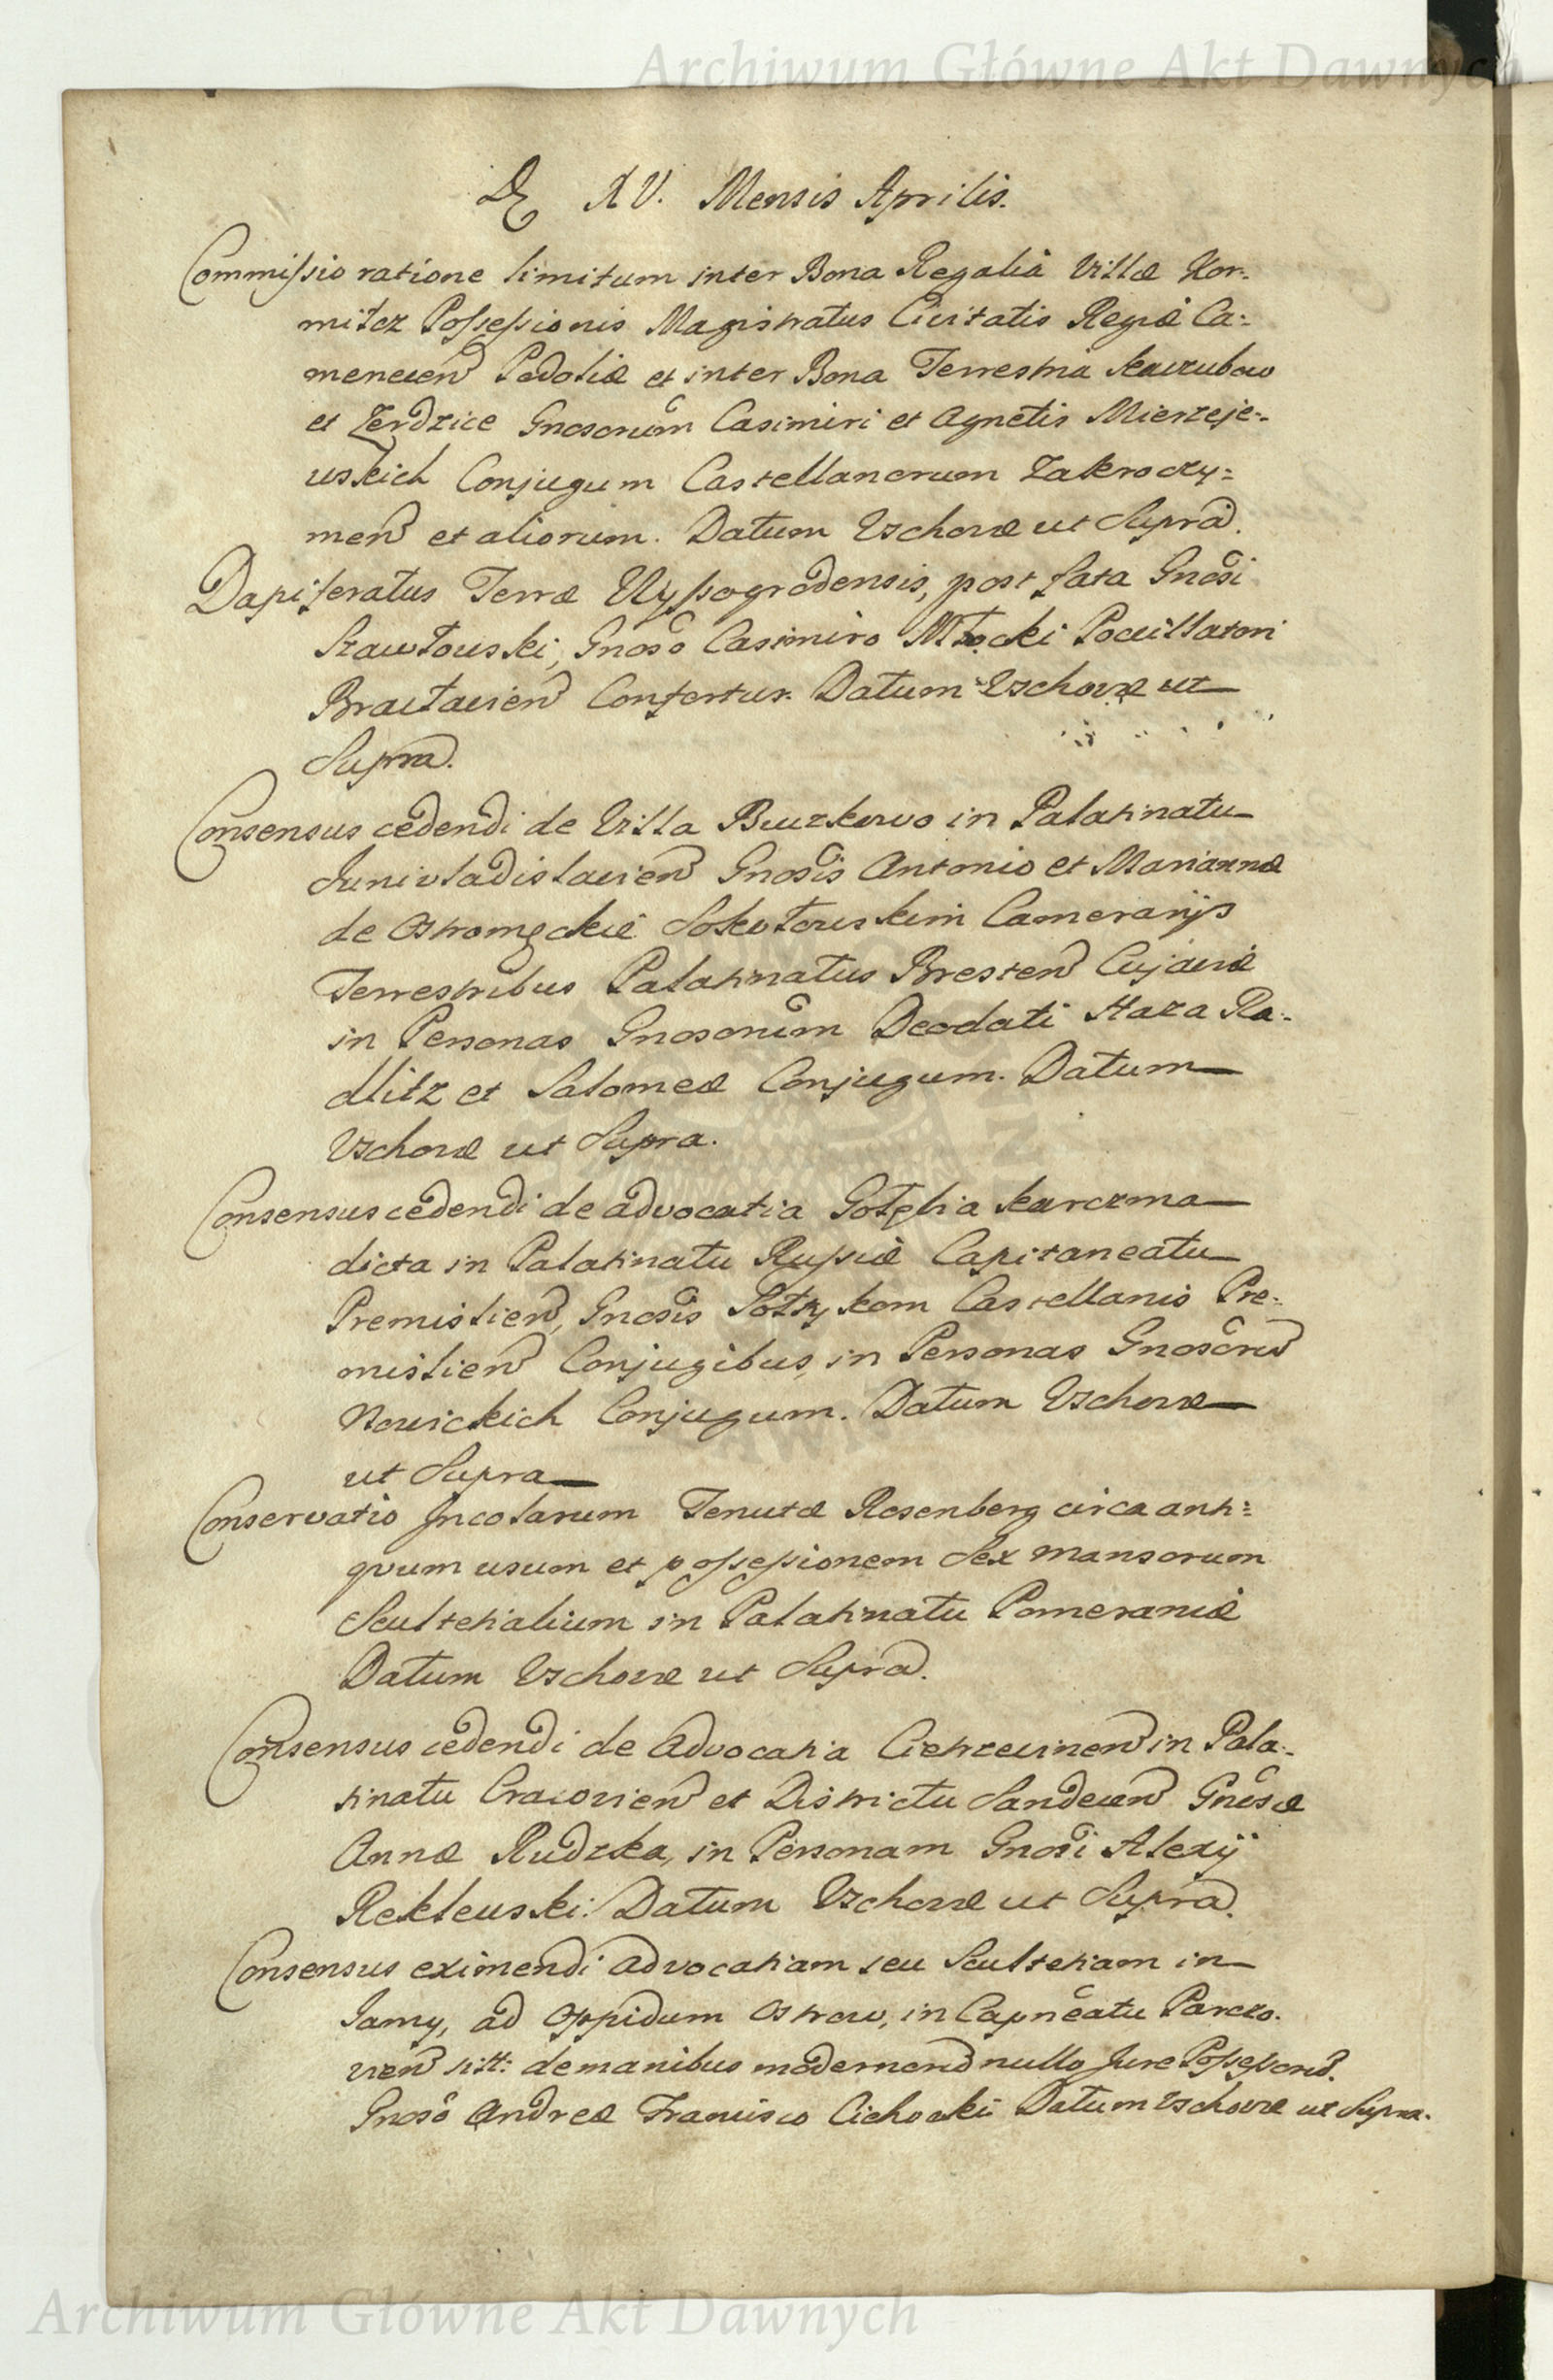 Archiwum Główne Akt Dawnych
D XV. Mensis Aprilis.
Commissio ratione limitum inter Bona Regalia Villæ Kor-
mitcz Possessionis Magistratus Civitatis Regiæ Ca:
menecen Podoliæ et inter Bona Terrestria Kawzubow
et Zerdzice Gnosorum Casimiri et Agnetis Mierzeje-
wskich Conjugum Castellanorum Zakroczy=
men et aliorum. Datum Vschovæ ut Supra.
Dapiferatus Terræ Wyssogrodensis, post fata Gnosi
Szawłowski, Gnoso Casimiro Młocki Pocillatori
Bracłavien Confertur. Datum Vschovæ ut
Supra.
Consensus cedendi de Villa Buczkowo in Palatinatu
Juniwladislavien Gnosis Antonio et Mariannæ
de Ostromęckie Sokołowskim Camerarijs
Terrestribus Palatinatus Bresten Cujaviæ
in Personas Gnosorum Deodati Haza Ra-
dlitz et Salomeæ Conjugum. Datum
Vschovæ ut Supra.
Consensus cedendi de advocatia Gołębia karczma
dicta in Palatinatu Russiæ Capitaneatu
Premislien, Gnosis Sołtykom Castellanis Pre-
mislien Conjugibus, in Personas Gnosoru
Nowickich Conjugum. Datum Vschovæ
ut Supra
Conservatio Incolarum Tenutæ Rosenberg circa anti=
quum usum et possessionem Sex mansorum
Scultetialium in Palatinatu Pomeraniæ
Datum Vschovæ ut Supra.
Consensus cedendi de Advocatia Cietrzewinen in Pala-
tinatu Cracovien et Districtu Sandecen Gnosæ
Annæ Rudzka, in Personam Gnosi Alexij
Reklewski. Datum Vschovæ ut Supra.
Consensus eximendi advocatiam seu Scultetiam in
Jamy, ad Oppidum Ostrow, in Capneatu Parczo.
vien sitt: de manibus modernoru nullo Jure Possessoru.
Gnoso Andreæ Francisco Cichocki Datum Vschovæ ut Supra.
Archiwum Główne Akt Dawnych